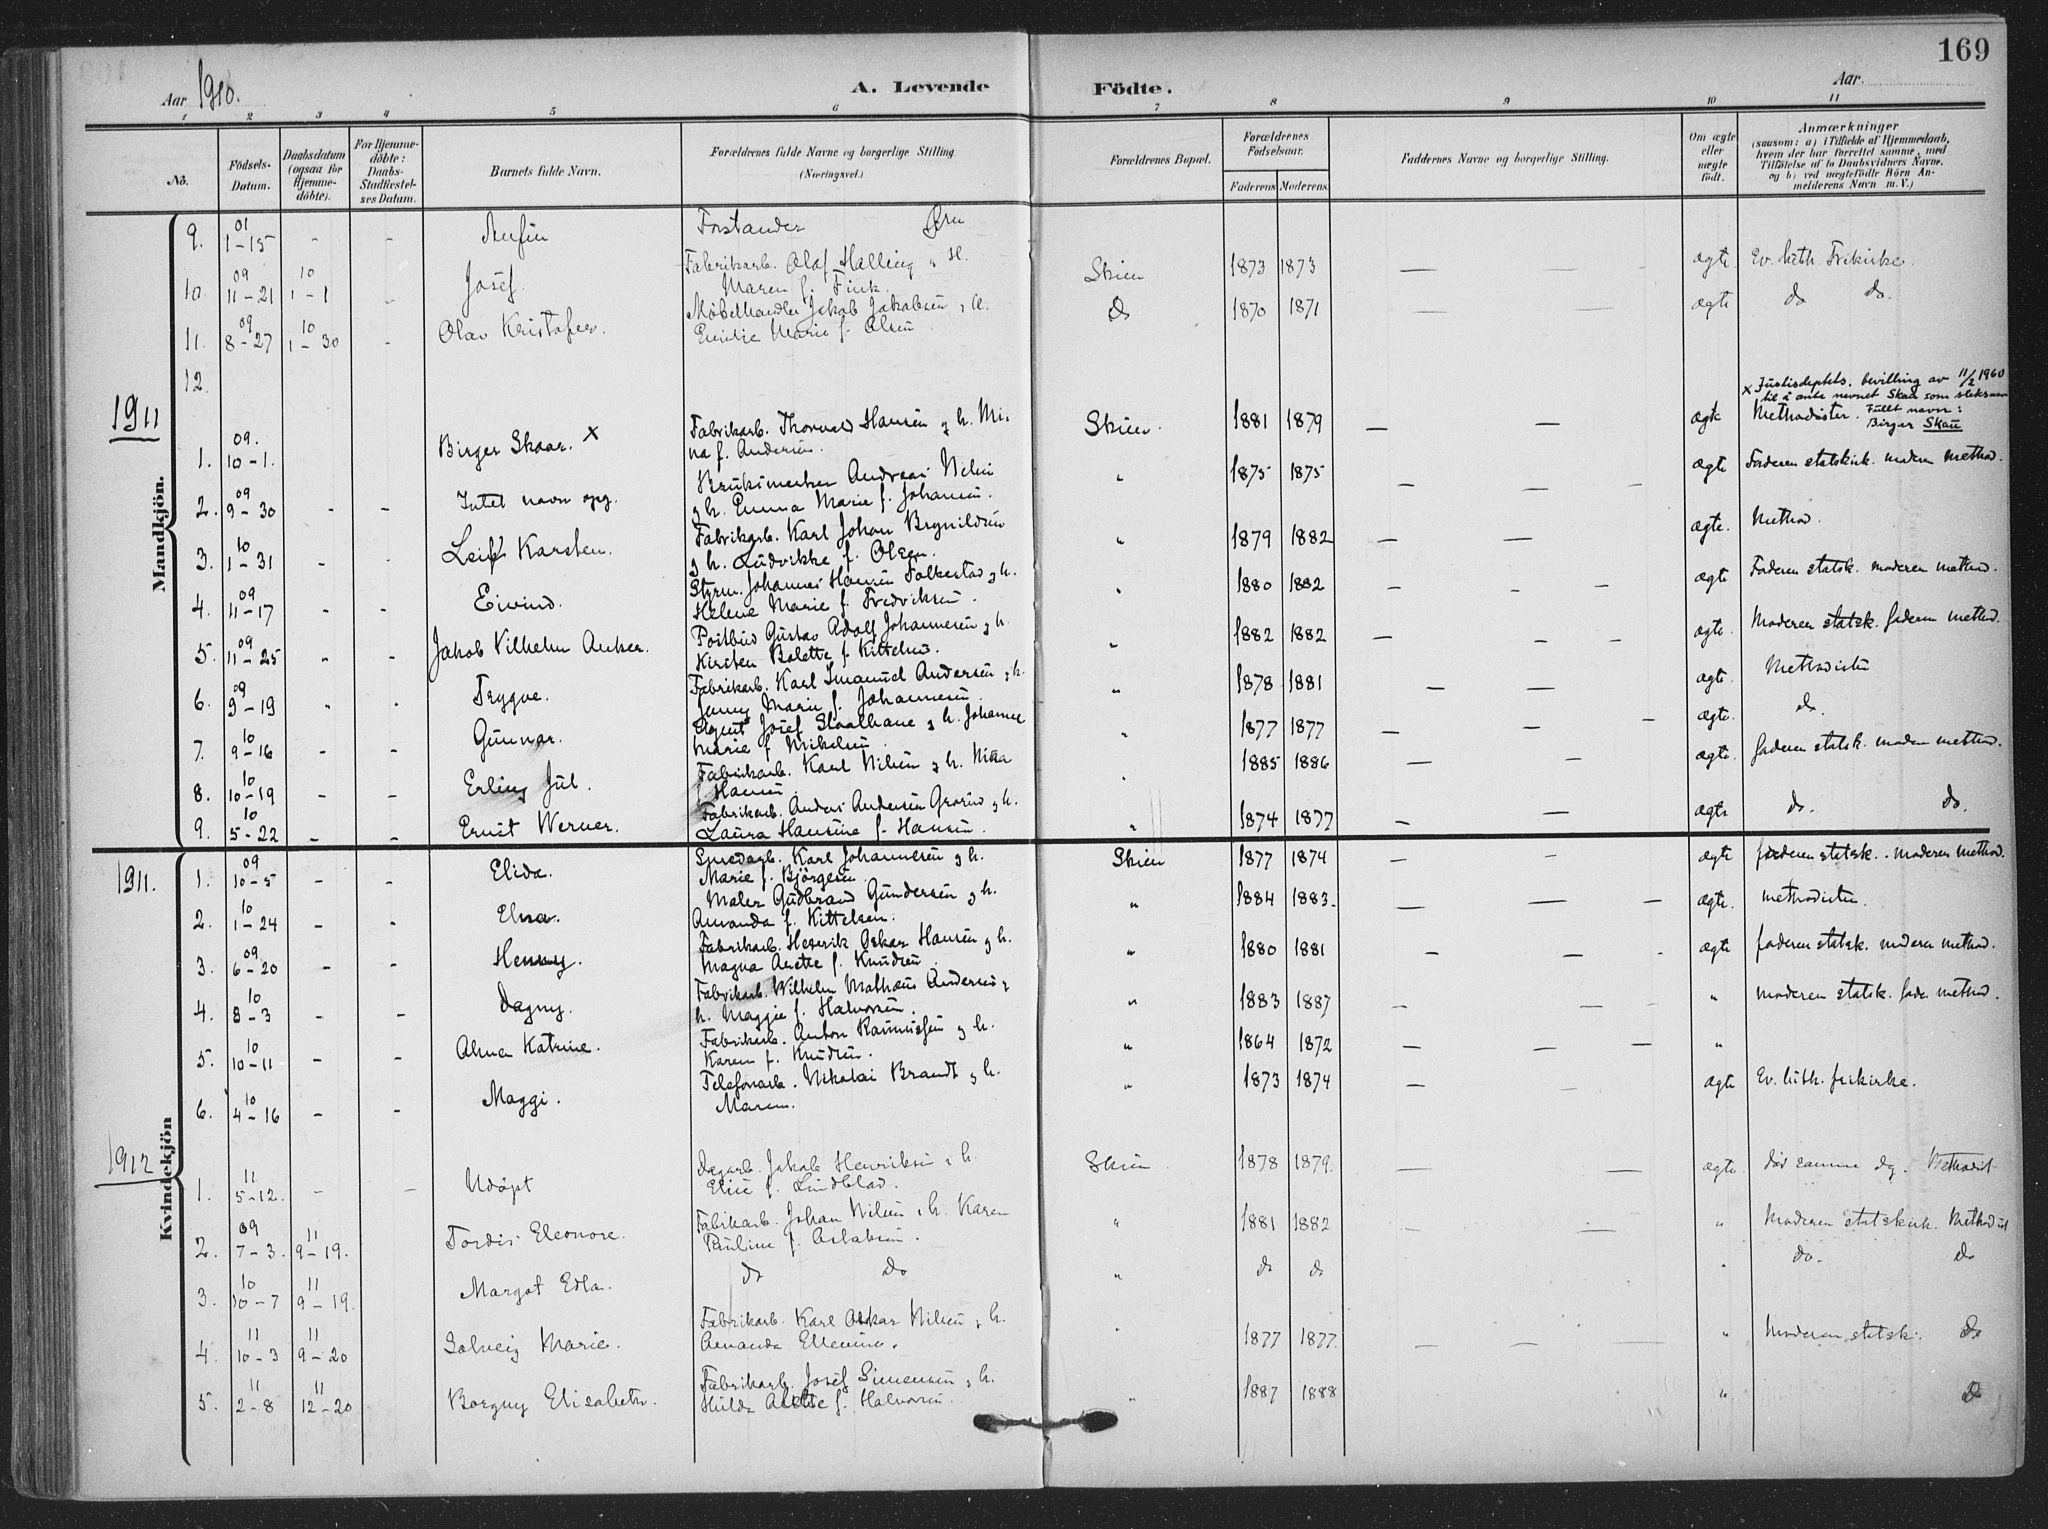 169
Aar 1910.
A. Levende Födte.
Aar
1 2 3 4 5 6 7 8 9 10 11
No.
Födsels-Datum.
Daabsdatum (ogsaa for Hjemmedöbte).
For Hjemmedöbte: Daabs-Stadfæstelses Datum.
Barnets fulde Navn.
Forældrenes fulde Navne og borgerlige Stilling (Næringsvei.)
Forældrenes Bopæl.
Forældrenes Födselsaar.
Faderens. Moderens.
Faddernes Navne og borgerlige Stilling.
Om ægte eller uægte födt.
Anmærkninger
(saasom: a) i Tilfælde af Hjemmedaab, hvem der har forrettet samme, med Tilföielse af to Daabsvidners Navne, og b) ved uægtefödte Börn Anmelderens Navn m. V.)
Mandkjön.
9. 01 1-15 - - Forstander
10. 09 11-21 10 1-1 - Josef. Fabrikarb. Olaf Halling o. H. Skien 1873 1873 — — — ægte Ev. luth. Frikirke.
Maren f. Fink.
11. 09 8-27 10 1-30 - Olav Kristofer. Møbelhandler Jakob Jakobsen o. h. Do 1870 1871 — — ægte do do.
Emilie Marie f. Olsen
12.
1911
x Justisdeptets. bevilling av 11/2 1960
til å anta navnet Skau som slektsnavn
Fullt navn:
Birger Skau
1. 09. 10-1. Birger Skaar. x Fabrikarb. Thorvald Hansen g h. Mi- Skien. 1881 1879 — — ægte Methodister.
na f. Andersen.
2. 09 9-30 - - Intet navn opg. Andreas Nilsen " 1875 1875 — — — ægte Faderen statskirk. moderen method.
g h. Emma Marie f. Johansen.
3. 10 1-31 - - Leif Karsten. Fabrikarb. Karl Johan Brynildsen " 1879 1882 — — ægte. Method.
g h. Ludvikke f. Olsen.
4. 09 11-17 - - Eivind. Styrm. Johannes Hansen Falkestad g h. " 1880 1882 — — — ægte Faderen statsk. moderen method.
Helene Marie f. Fredriksen.
5. 09 11-25 - - Jakob Vilhelm Anker. Postbud Gustav Adolf Johannesen g h. " 1882 1882 — — — ægte. Moderen statsk. faderen method.
Kirsten Bolette f. Kittelsen.
6. 09 9-19 - - Trygve. Fabrikarb. Karl Imanuel Andersen g h. " 1878 1881 — — ægte. Methodisten
Jenny Marie f. Johannesen
7. 10 9-16 - - Gunnar. Agent Josef Staalhane g h. Johanne " 1877 1877 — — — ægte. do.
Marie f. Mikelsen.
8. 10 10-19 - - Erling Jul. Fabrikarb. Karl Nilsen g h. " 1885 1886 — — ægte. faderen statsk. moderen method.
f. Hansen.
9. 10 5-22 - - Ernst Werner. Fabrikarb. Anders Andersen g h. " 1874 1877 — — ægte do. do.
Laura Hansine f. Hansen.
Kvindekjön
1911.
1. 09 10-5 - - Elida. Karl Johannesen g h. Skien 1877 1874 — — ægte faderen statsk. moderen method.
Marie f. Björgesen
2. 10 1-24 - - Elna. Maler Gudbrand Gundersen g h. " 1884 1883. — — — ægte. methodisten.
Amanda f. Kittelsen.
3. 09 6-20 - - Henny. Fabrikarb. Henrik Oskar Hansen g h. " 1880 1881 — — - ægte faderen statsk. moderen method.
Magna Anette f. Knudsen.
4. 10 8-3 - - Dagny. Fabrikarb. Wilhelm Mathæus Andersen g " 1883 1887 — — — " moderen statsk. fader. method.
h. Maggie f. Halvorsen.
5. 10 10-11 - - Alma Katrine. Fabrikarb. Anton Rasmussen g h. " 1864 1872 — — — "
Karen f. Knudsen.
6. 10 4-16 - - Maggi. Telefonarb. Nikolai Brandt g h. " 1873 1874 — — ægte Ev. luth. frikirke.
Maren.
1912
1. 11 5-12. - - Udøpt Dagarb. Jakob Henriksen o h. Skien 1878 1879. — — ægte. død samme dg. Methodist
Elise f. Lindblad.
2. 09 7-3. 11 9-19. Tordis Eleonore. Fabrikarb. Johan Nilsen o h. Karen " 1881 1882 — — " Moderen statskirk. Methodist
Pauline f. Aslaksen.
3. 10 10-7 11 9-19. Margot Edla. do do " do do " do. do
4. 11 10-3 11 9-20 Solveig Marie. Fabrikarb. Karl Oskar Nilsen g h. " 1877 1877. — — — " Moderen statsk. do
Amanda Ellevine.
5. 11 2-8 11 12-20 Borgny Elisabeth. Fabrikarb. Josef Simensen g h. " 1887 1888 " do
Hilda f. Halvorsen.